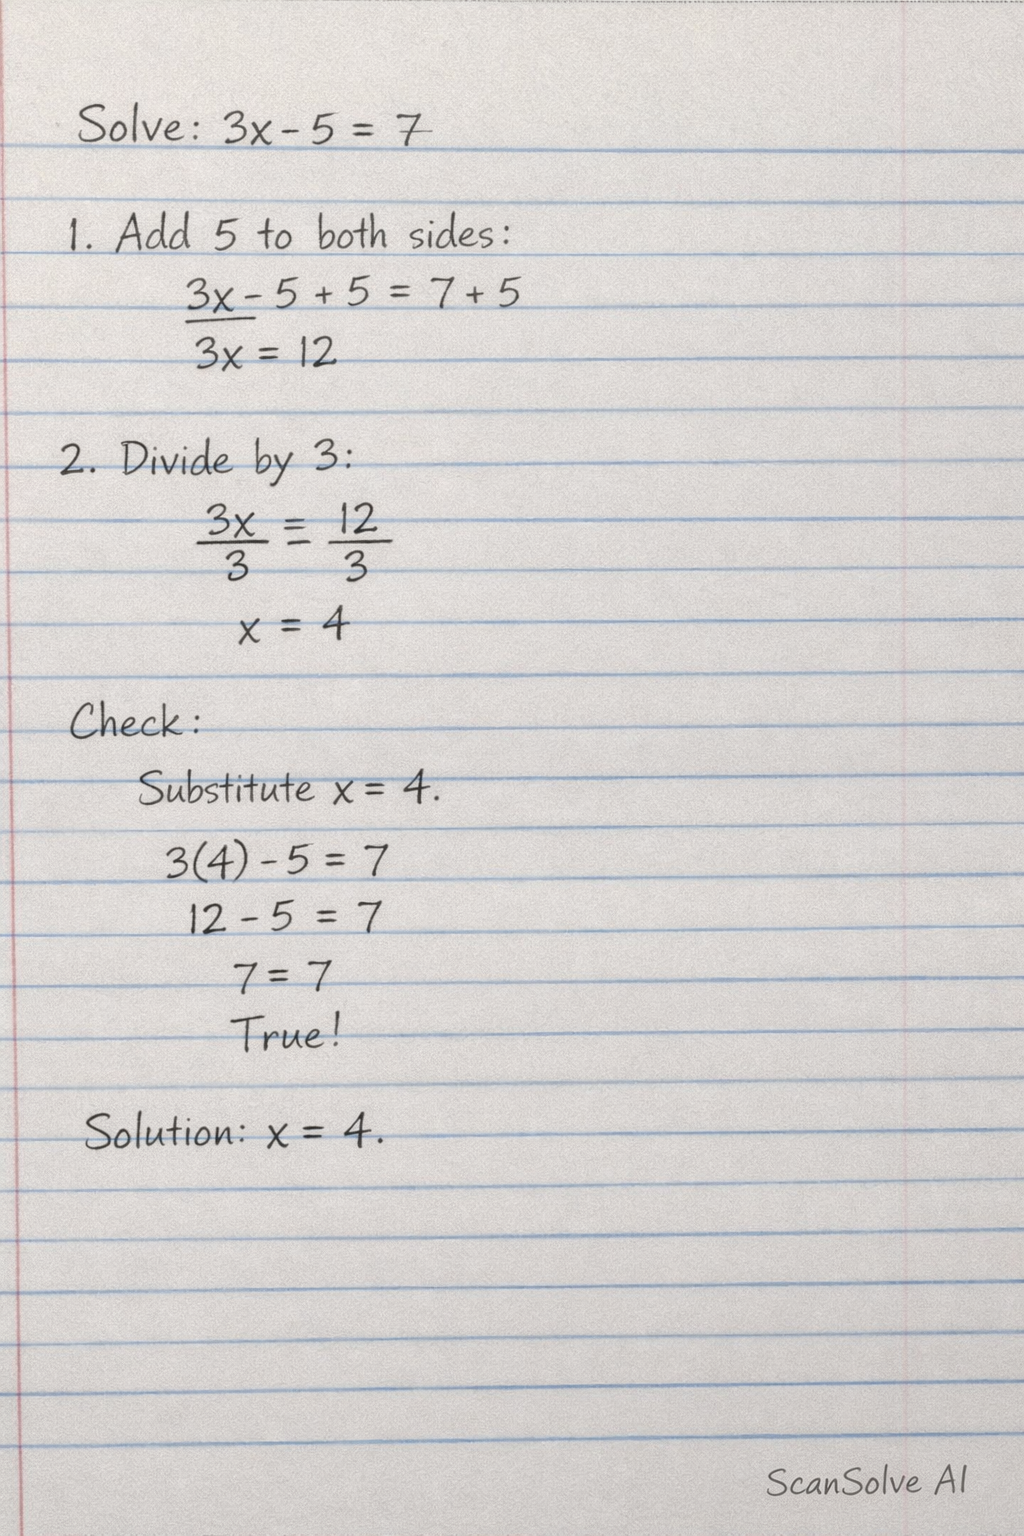 Solve: 3x - 5 = 7
1. Add 5 to both sides:
3x - 5 + 5 = 7 + 5
3x = 12
2. Divide by 3:
3x/3 = 12/3
x = 4
Check:
Substitute x = 4.
3(4) - 5 = 7
12 - 5 = 7
7 = 7
True!
Solution: x = 4.
ScanSolve AI